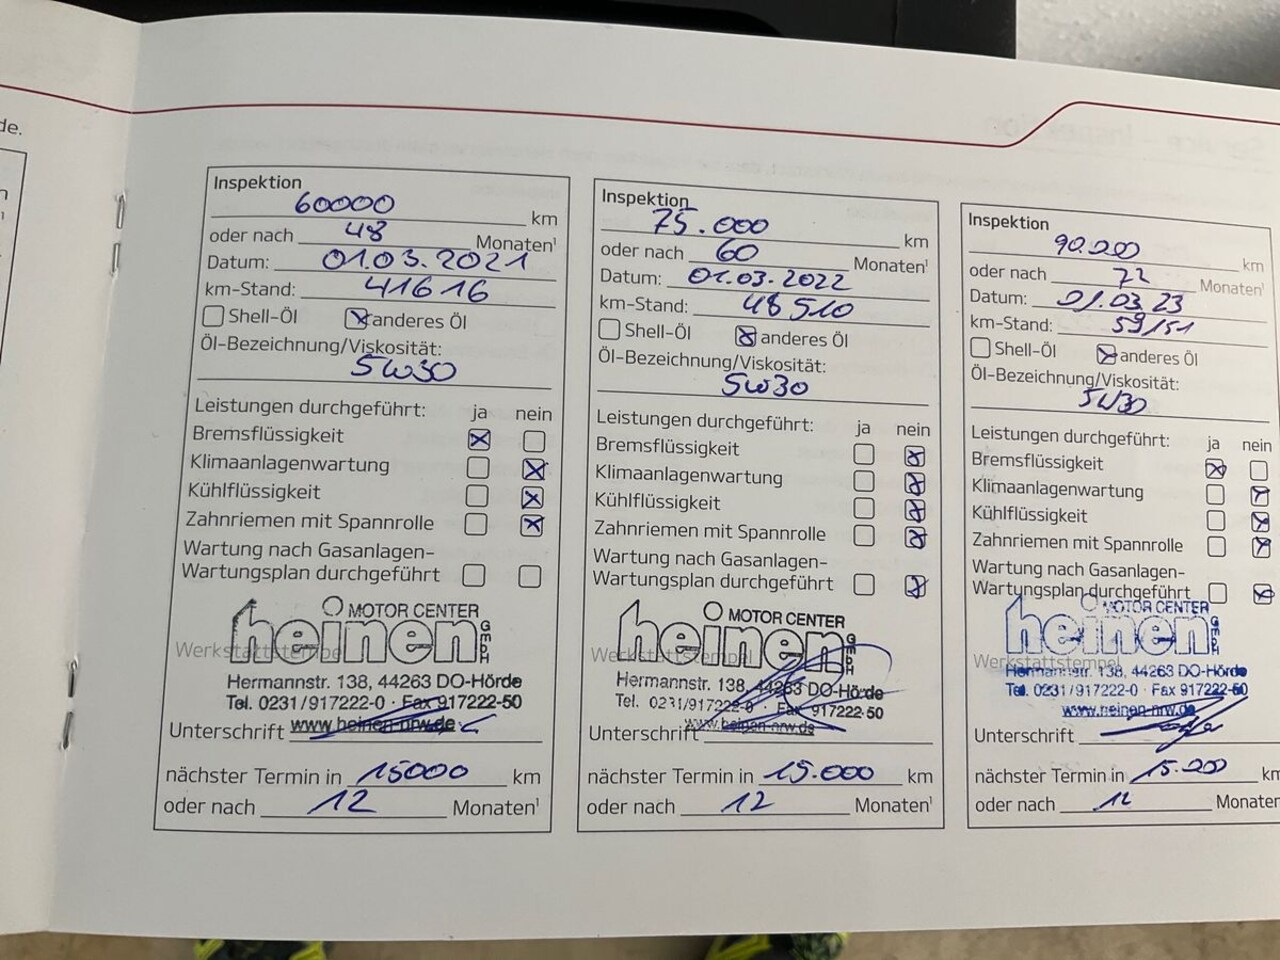 de.
Inspektion
60000 km
oder nach 48 Monaten¹
Datum: 01.03.2021
km-Stand: 41616
Shell-Öl anderes Öl
Öl-Bezeichnung/Viskosität:
5W30
Leistungen durchgeführt: ja nein
Bremsflüssigkeit
Klimaanlagenwartung
Kühlflüssigkeit
Zahnriemen mit Spannrolle
Wartung nach Gasanlagen-
Wartungsplan durchgeführt
MOTOR CENTER
heinen GmbH
Werkstattstempel
Hermannstr. 138, 44263 DO-Hörde
Tel. 0231/917222-0 · Fax 917222-50
www.heinen-nrw.de
Unterschrift
nächster Termin in 15000 km
oder nach 12 Monaten¹
Inspektion
75.000 km
oder nach 60 Monaten¹
Datum: 01.03.2022
km-Stand: 48510
Shell-Öl anderes Öl
Öl-Bezeichnung/Viskosität:
5W30
Leistungen durchgeführt: ja nein
Bremsflüssigkeit
Klimaanlagenwartung
Kühlflüssigkeit
Zahnriemen mit Spannrolle
Wartung nach Gasanlagen-
Wartungsplan durchgeführt
MOTOR CENTER
heinen GmbH
Werkstattstempel
Hermannstr. 138, 44263 DO-Hörde
Tel. 0231/917222-0 · Fax 917222-50
www.heinen-nrw.de
Unterschrift
nächster Termin in 15.000 km
oder nach 12 Monaten¹
Inspektion
90.000 km
oder nach 72 Monaten¹
Datum: 01.03.23
km-Stand: 59151
Shell-Öl anderes Öl
Öl-Bezeichnung/Viskosität:
5W30
Leistungen durchgeführt: ja nein
Bremsflüssigkeit
Klimaanlagenwartung
Kühlflüssigkeit
Zahnriemen mit Spannrolle
Wartung nach Gasanlagen-
Wartungsplan durchgeführt
MOTOR CENTER
heinen GmbH
Werkstattstempel
Hermannstr. 138, 44263 DO-Hörde
Tel. 0231/917222-0 · Fax 917222-50
www.heinen-nrw.de
Unterschrift
nächster Termin in 15.000 km
oder nach 12 Monaten